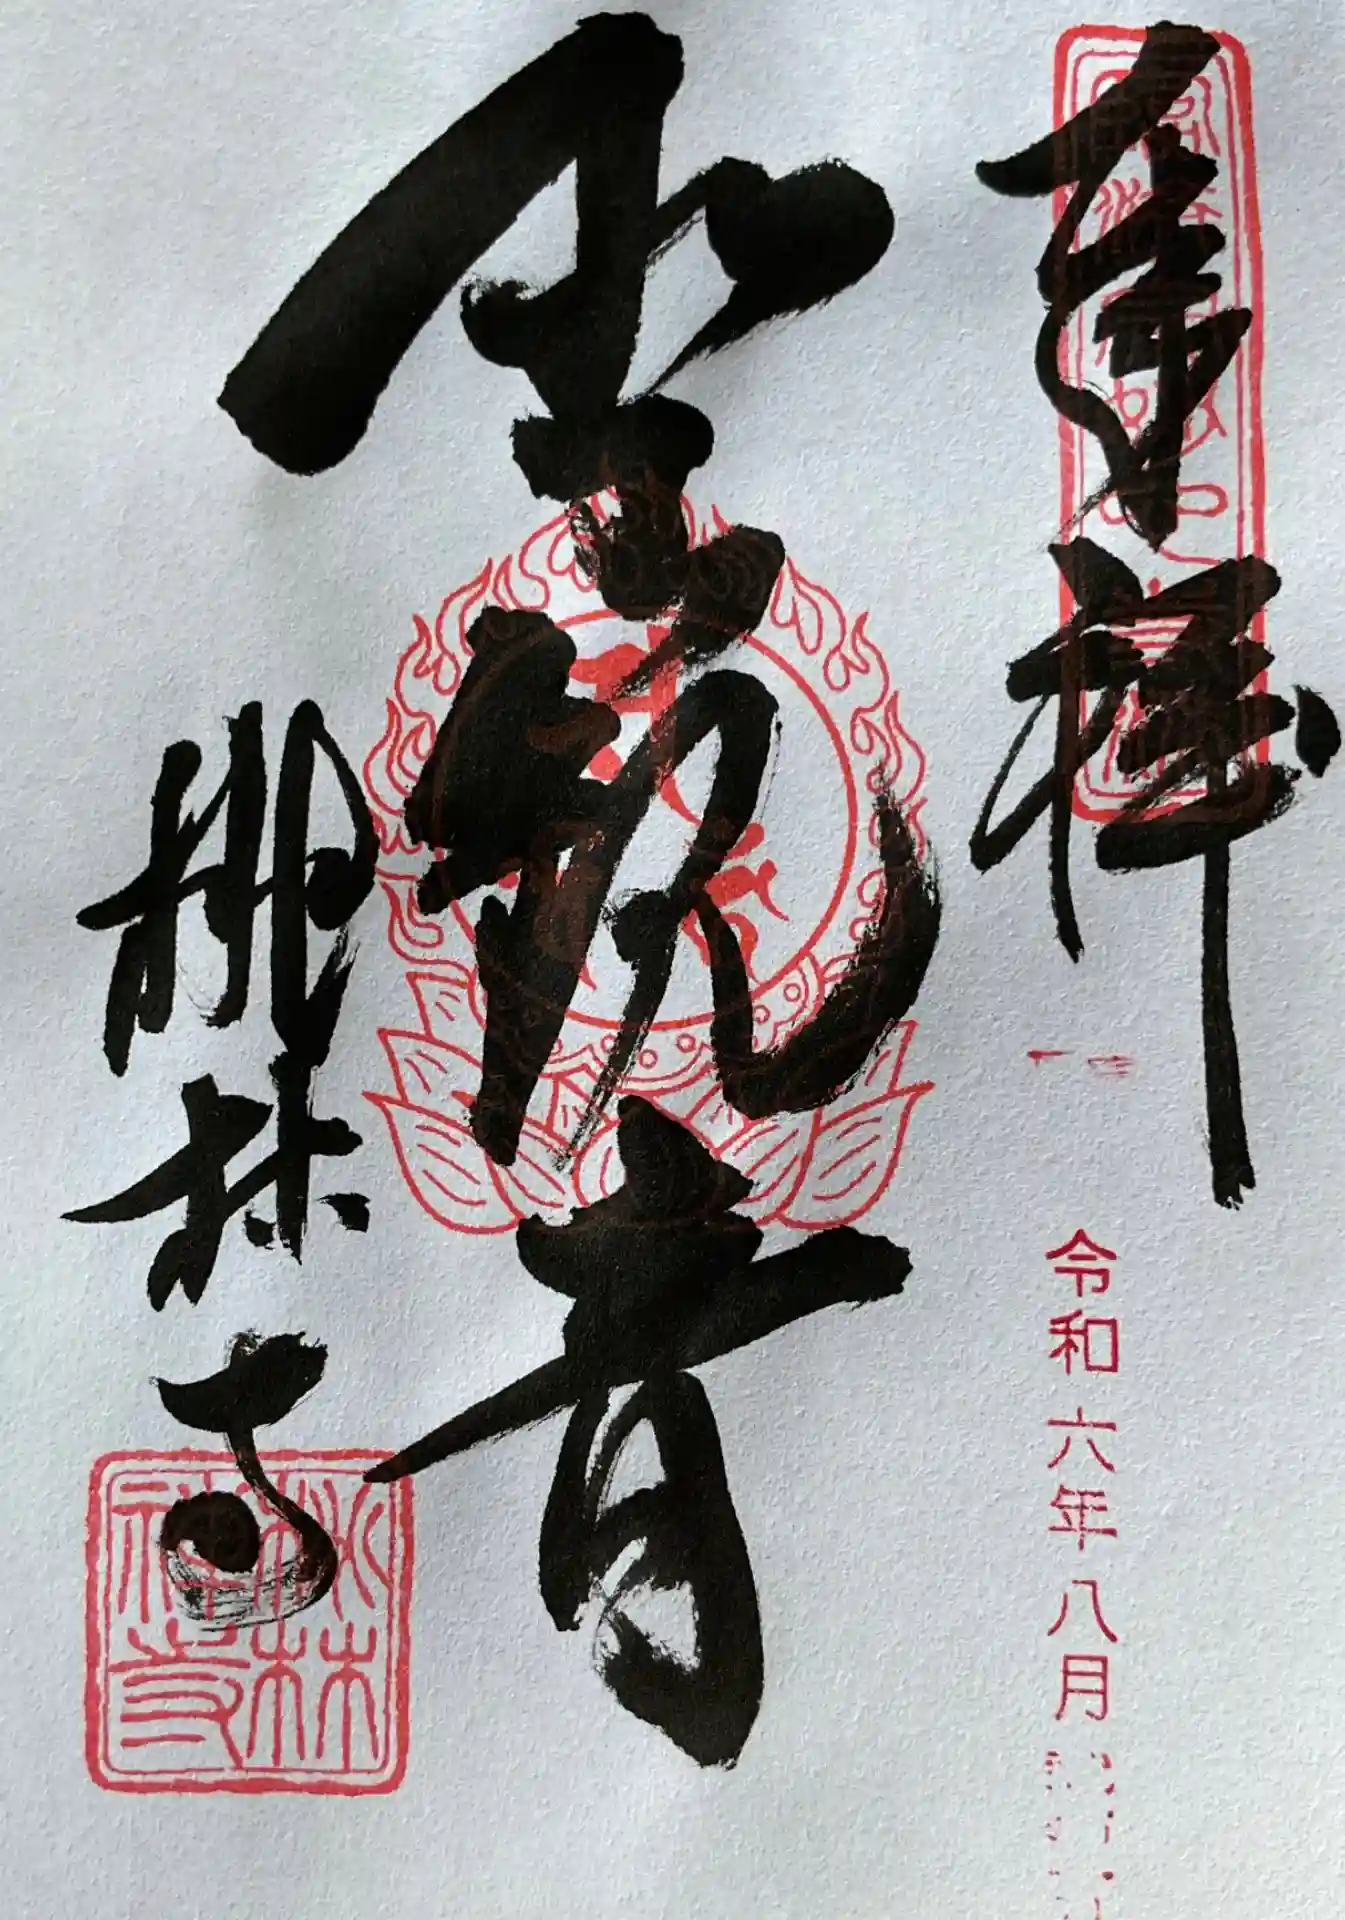 奉拝
令和六年八月
聖観音
桃林寺
桃林
禅寺